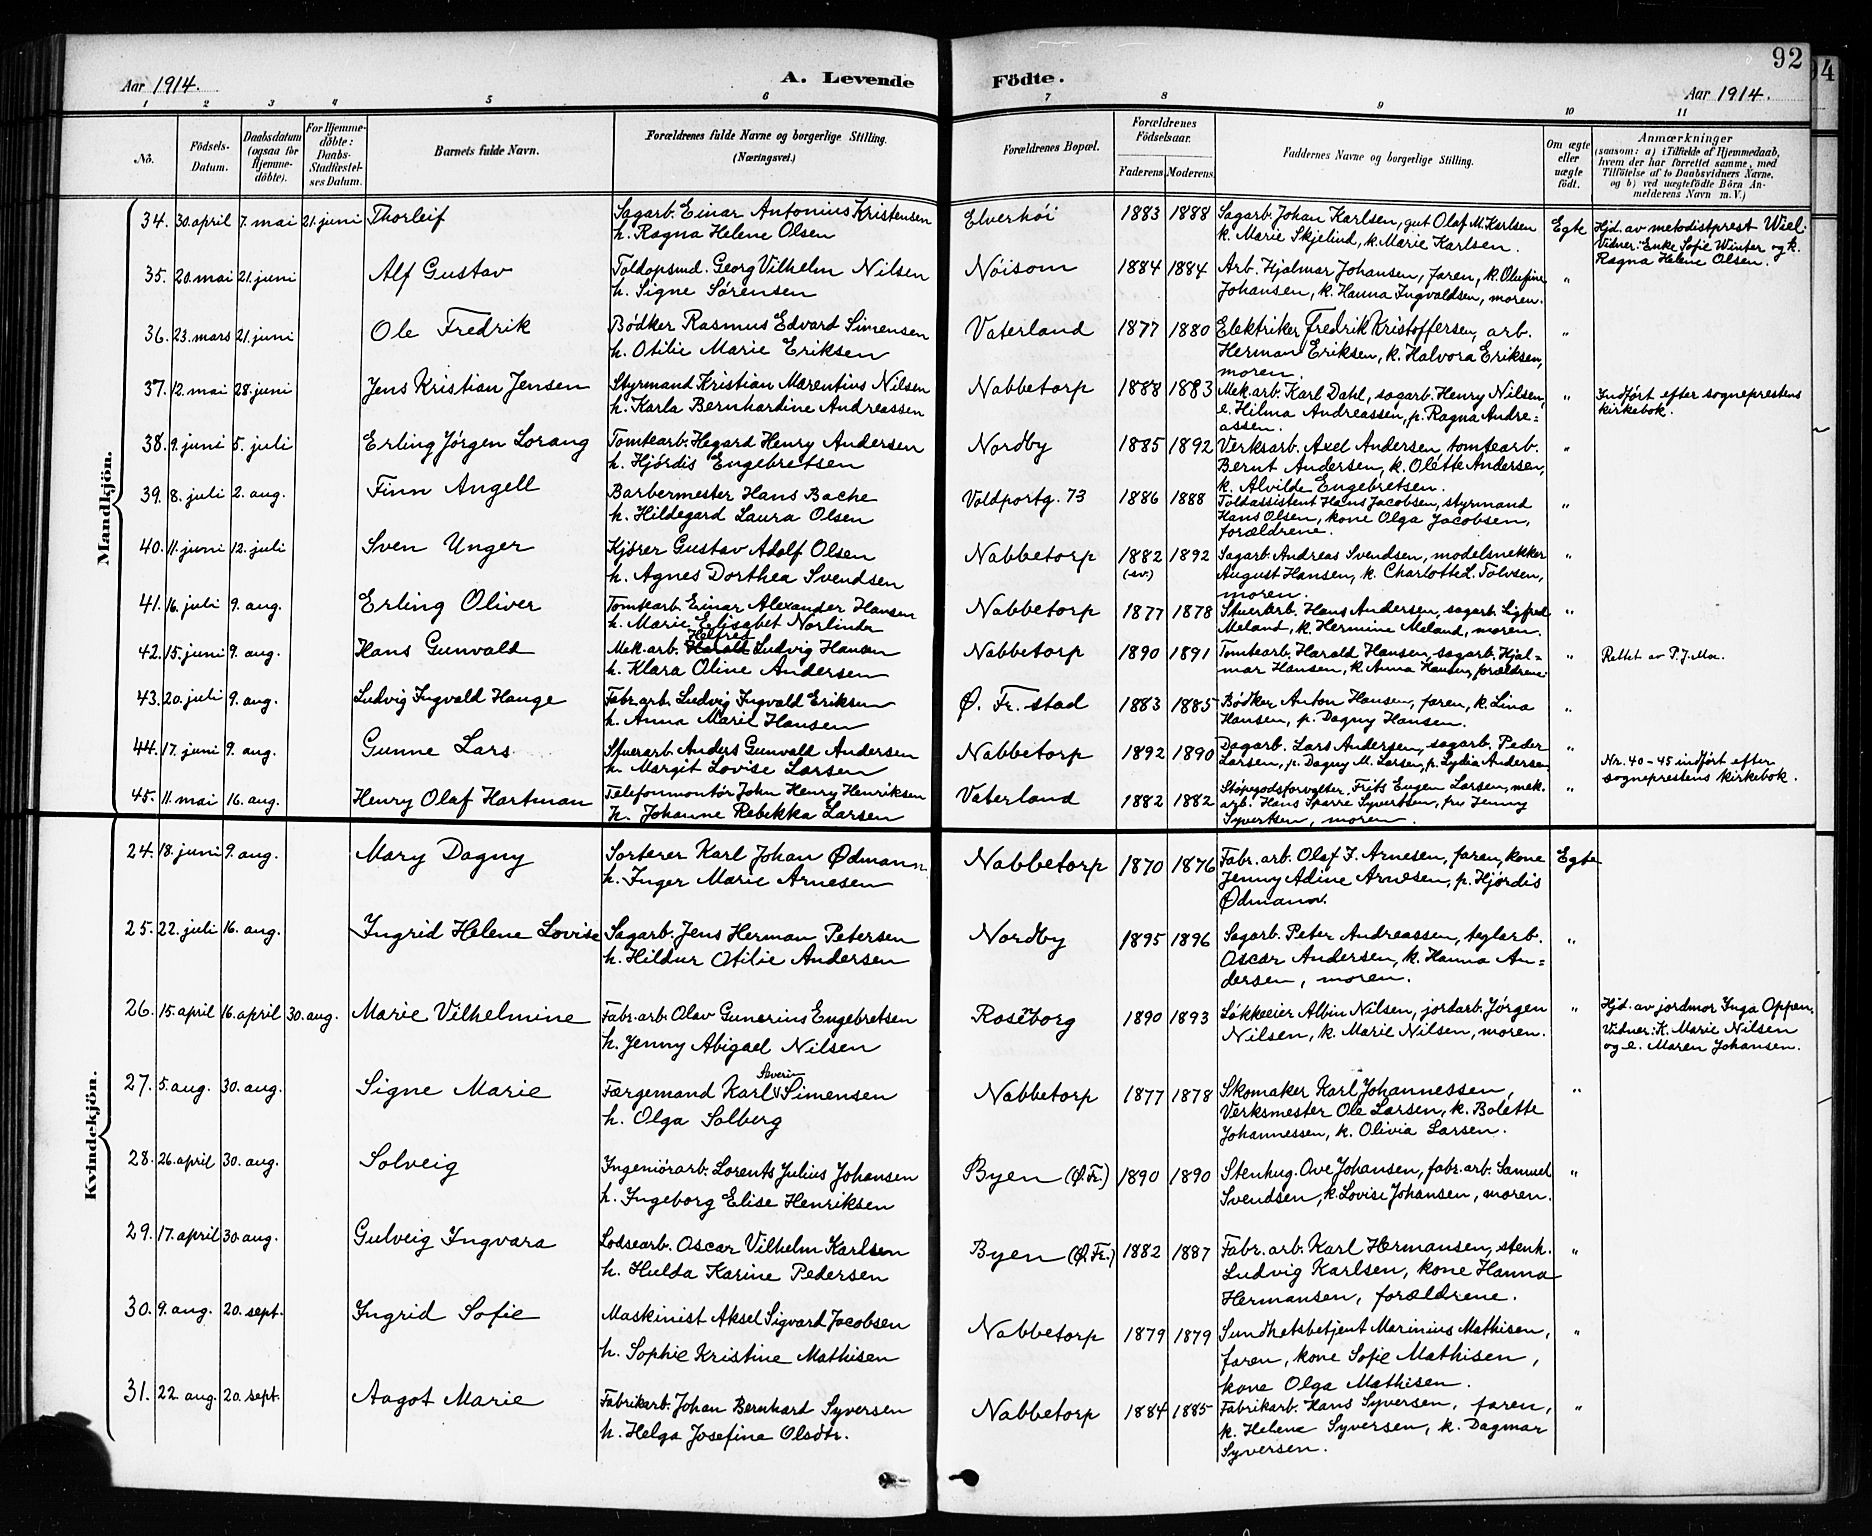 92
94
Aar 1914.
A. Levende Födte.
Aar 1914.
1 2 3 4 5 6 7 8 9 10 11
No.
Födsels-Datum.
Daabsdatum (ogsaa för Hjemme-döbte).
For Hjemme-döbte: Daabs-Stadfæstel-ses Datum.
Barnets fulde Navn.
Forældrenes fulde Navne og borgerlige Stilling.
(Næringsvei.)
Forældrenes Bopæl.
Forældrenes Födselsaar.
Faderens. Moderens.
Faddernes Navne og borgerlige Stilling.
Om ægte eller uægte födt.
Anmærkninger
(saasom: a) i Tilfælde af Hjemmedaab,
hvem der har forrettet samme, med
Tilföielse af to Daabsvidners Navne,
og b) ved uægtefödte Börn An-
melderens Navn m. V.)
Mandkjön.
34. 30. april 7. mai 21. juni Thorleif Sagarb. Einar Antonius Kristensen Elverhöi 1883 1888 Sagarb. Johan Karlsen, gut Olaf M. Karlsen Egte Hjd. av metodistprest Wiel.
h. Ragna Helene Olsen k. Marie Skjelind, k. Marie Karlsen. Vidner: Enke Sofie Winter og k.
Ragna Helene Olsen.
35. 20. mai 21. juni Alf Gustav Toldopsmd. Georg Vilhelm Nilsen Nöisom 1884 1884 Arb. Hjalmar Johansen, faren, k. Olufine "
h. Signe Sörensen Johansen, k. Hanna Ingvaldsen, moren.
36. 23. mars 21. juni Ole Fredrik Bödker Rasmus Edvard Simensen Vaterland 1877 1880 Elektriker Fredrik Kristoffersen, arb. "
h. Otilie Marie Eriksen Herman Eriksen, k. Halvora Eriksen,
moren.
37. 12. mai 28. juni Jens Kristian Jensen Styrmand Kristian Marentius Nilsen Nabbetorp 1888 1883 Mek. arb. Karl Dahl, sagarb. Henry Nilsen, " Indfört efter sogneprestens
h. Karla Bernhardine Andreassen e. Hilma Andreassen, p. Ragna Andre= kirkebok.
assen.
38. 9. juni 5. juli Erling Jörgen Lorang Tomtearb. Hegard Henry Andersen Nordby 1885 1892 Verksarb. Axel Andersen, tomtearb. "
h. Hjördis Engebretsen Bernt Andersen, k. Olette Andersen,
k. Alvilde Engebretsen.
39. 8. juli 2. aug. Finn Angell Barbermester Hans Bache Voldportg. 73 1886 1888 Toldassistent Hans Jacobsen, styrmand "
h. Hildegard Laura Olsen Hans Olsen, kone Olga Jacobsen,
forældrene.
40. 11. juni 12. juli Sven Unger Kjörer Gustav Adolf Olsen Nabbetorp 1882 (sv.) 1892 Sagarb. Andreas Svendsen, modelsnekker "
h. Agnes Dorthea Svendsen August Hansen, k. Charlotte L. Tolvsen,
moren.
41. 16. juli 9. aug. Erling Oliver Tomtearb. Einar Alexander Hansen Nabbetorp 1877 1878 Stuerarb. Hans Andersen, sagarb. Sigfred "
h. Marie Elisabet Norlinder Meland, k. Hermine Meland, moren.
Helfred
42. 15. juni 9. aug. Hans Gunvald Mek. arb. Harald Ludvig Hansen Nabbetorp 1890 1891 Tomtearb. Harald Hansen, sagarb. Hjal= " Rettet av P. J. Moe.
h. Klara Oline Andersen mar Hansen, k. Anna Hansen, forældrene.
43. 20. juli 9. aug. Ludvig Ingvald Hauge Fabr. arb. Ludvig Ingvald Eriksen Ø. Fr. stad 1883 1885 Bödker Anton Hansen, faren, k. Lina "
h. Anna Marie Hansen Hansen, p. Dagny Hansen.
44. 17. juni 9. aug. Gunne Lars Stuerarb. Anders Gunvald Andersen Nabbetorp 1892 1890 Dagarb. Lars Andersen, sagarb. Peder "
h. Margit Lovise Larsen Larsen, p. Dagny M. Larsen, p. Lydia Andersen Nr. 40-45 indfört efter
sogneprestens kirkebok.
45. 11. mai 16. aug. Henry Olaf Hartman Telefonmontör John Henry Henriksen Vaterland 1882 1882 Stöpgodsforvalter Frits Eugen Larsen, mek. "
h. Johanne Rebekka Larsen arb. Hans Sparre Syvertsen, fru Jenny
Syvertsen, moren.
Kvindekjön.
24. 18. juni 9. aug. Mary Dagny Sorterer Karl Johan Ødmann Nabbetorp 1870 1876 Fabr. arb. Olaf J. Arnesen, faren, kone Egte
h. Inger Marie Arnesen Jenny Adine Arnesen, p. Hjördis
Ødmann.
25. 22. juli 16. aug. Ingrid Helene Lovise Sagarb. Jens Herman Petersen Nordby 1895 1896 Sagarb. Peter Andreassen, teglarb. "
h. Hildur Otilie Andersen Oscar Andersen, k. Hanna An=
dersen, moren.
26. 15. april 16. april 30. aug. Marie Vilhelmine Fabr. arb. Olav Gunerius Engebretsen Roseborg 1890 1893 Lökkeeier Albin Nilsen, jordarb. Jörgen " Hjd. av jordmor Inga Oppen.
h. Jenny Abigael Nilsen Nilsen, k. Marie Nilsen, moren. Vidner: K. Marie Nilsen
og e. Maren Johansen.
Severin
27. 5. aug. 30. aug. Signe Marie Færgemand Karl Simensen Nabbetorp 1877 1878 Skomaker Karl Johannessen, "
h. Olga Solberg Verksmester Ole Larsen, k. Bolette
Johannessen, k. Olivia Larsen.
28. 26. april 30. aug. Solveig Ingeniörarb. Lorents Julius Johansen Byen (Ø. Fr.) 1890 1890 Stenhug. Ove Johansen, fabr. arb. Samuel "
h. Ingeborg Elise Henriksen Svendsen, k. Lovise Johansen, moren.
29. 17. april 30. aug. Gulveig Ingvara Lodsearb. Oscar Vilhelm Karlsen Byen (Ø. Fr.) 1882 1887 Fabr. arb. Karl Hermansen, stenh. "
h. Hulda Karine Pedersen Ludvig Karlsen, kone Hanna
Hermansen, forældrene.
30. 9. aug. 20. sept. Ingrid Sofie Maskinist Aksel Sigvard Jacobsen Nabbetorp 1879 1879 Sundhetsbetjent Marinius Mathisen, "
h. Sophie Kristine Mathisen faren, kone Sofie Mathisen,
kone Olga Mathisen.
31. 22. aug. 20. sept. Aagot Marie Fabrikarb. Johan Bernhard Syversen Nabbetorp 1884 1885 Fabrikarb. Hans Syversen, faren, "
h. Helga Josefine Olsdtr. k. Helene Syversen, k. Dagmar
Syversen.